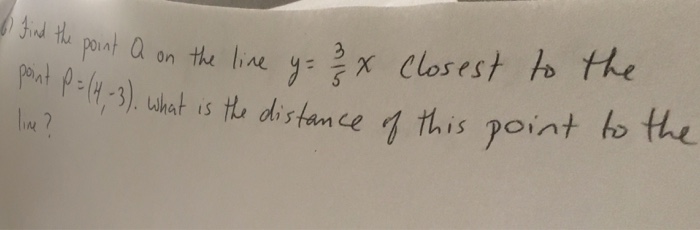 6) Find the point Q on the line y = 3/5 x closest to the
point P = (4, -3). What is the distance of this point to the
line?